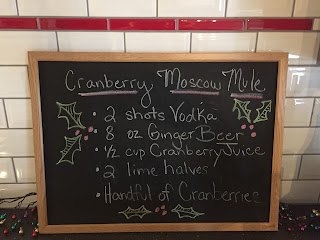 Cranberry Moscow Mule
• 2 shots Vodka
• 8 oz Ginger Beer
• 1/2 cup Cranberry Juice
• 2 lime halves
• Handful of Cranberries